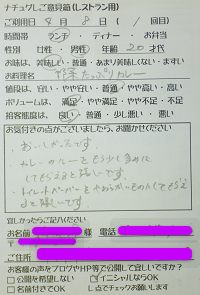 ナチュグしご意見箱(レストラン用)
ご利用日 4月 8日 ( / 回目)
時間帯 ランチ ・ ディナー ・ お弁当
性別 女性 ・ 男性 年齢 20 才代
お味は、美味しい・普通・あまり美味しくない・まずい
お料理名 野菜たっぷりカレー
値段は、安い・やや安い・普通・やや高い・高い
ボリュームは、満足・やや満足・やや不足・不足
接客態度は、良い・普通・少し悪い・悪い
お気付きの点がございましたら、お聞かせください
・おいしかったです。
・カレーのルーをもう少し多めに
してもらえると嬉しいです。
・トイレットペーパーをやわらかいものにしてもらえ
ると嬉しいです。
宜しかったらご記入ください
お名前 様 電話
〒
ご住所
お客様の声をブログやHP等で公開して宜しいですか?
□公開を希望しない □イニシャルならOK
□名前付きでOK し点でチェックお願いします